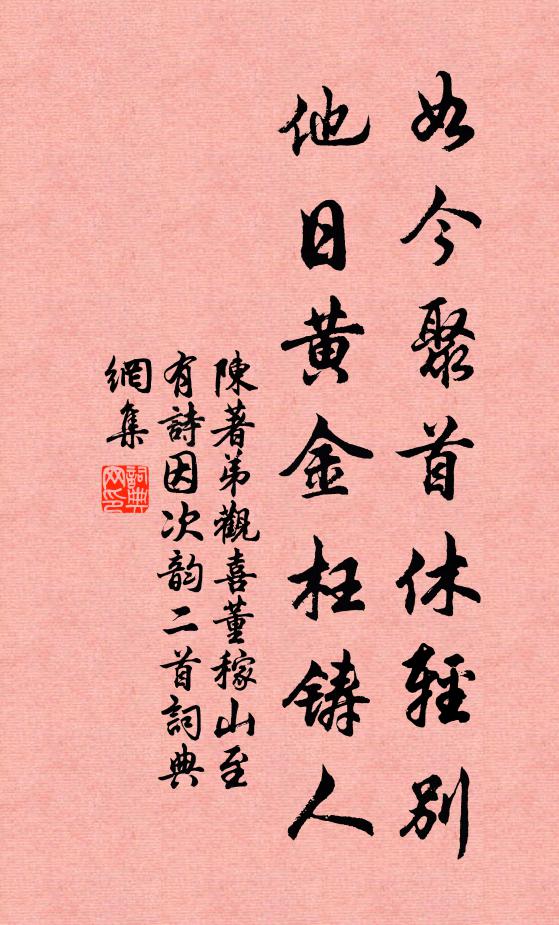 如今聚首休輕別
他日黃金枉鑄人
陳著弟觀喜董稼山至
有詩因次韵二首詞典
網集
詞典網印